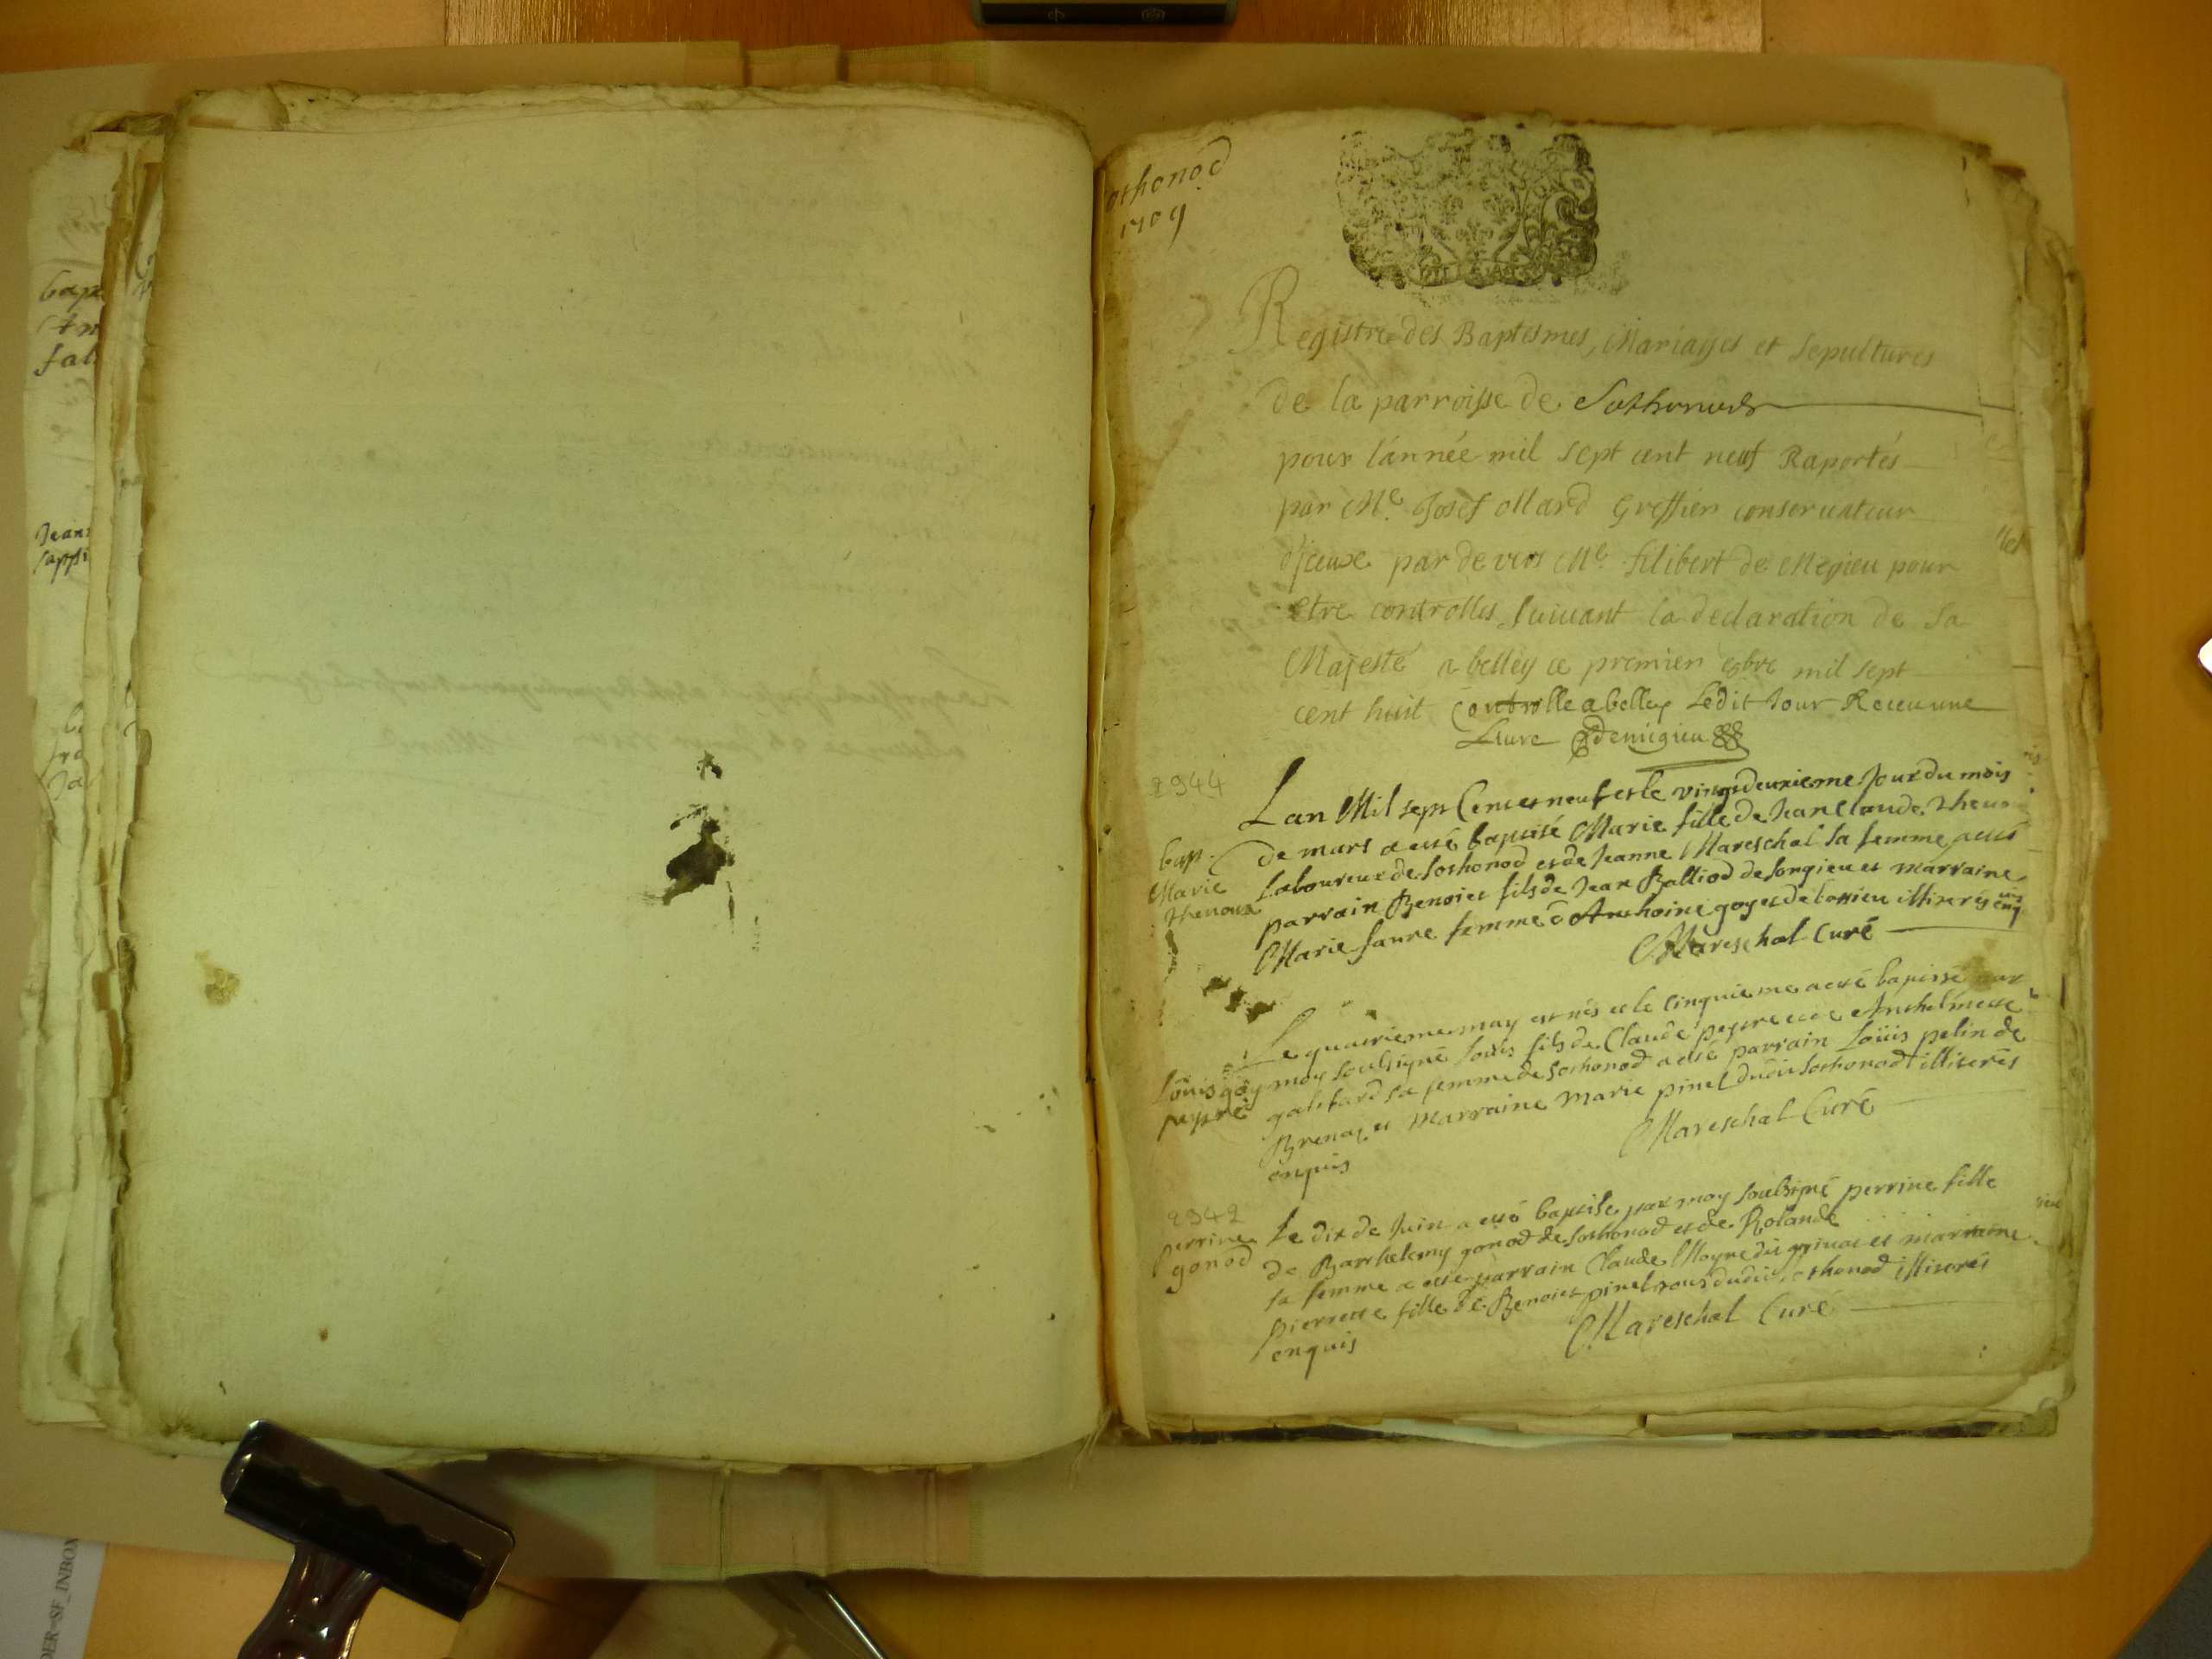 othonod
1709
Registre des Baptesmes, Mariages et Sepultures
de la parroisse de Sothonod
pour l'année mil sept cent neuf Raportés
par Me. Josef ollard Greffier conservateur
d'jceux par devers Me. filibert de Megieu pour
etre controlles suivant la declaration de sa
Majesté a belley ce premier xbre mil sept
cent huit Controlle a belley Ledit Jour Receu une
Liure demigieu
2944
Lan Mil sept Cent et neuf et le vingtdeuxieme Jour du mois
de mars a esté baptisé Marie fille de Jean Claude Thenou
bap.
Marie
Thenoux
Laboureux de sothonod et de Jeanne Mareschal sa femme a esté
parrain Benoict fils de Jean Balliod de songieu et marraine
Marie faure femme d'Anthoine goyet de illiterés enq
Mareschal Curé
Le quatrieme may est nés et le cinquieme a esté baptisé par
Louis
peytre
moy soubsigné Louis fils de Claude peytre et de Anthelmette
gallifard sa femme de sothonod a esté parrain Loüis pelin de
Brenaz et marraine Marie pinel dudit sothonod illiterés
enquis
Mareschal Curé
2942
perrine
gonod
Le dix de Juin a esté baptisé par moy soubsigné perrine fille
de Barthelemy gonod de sothonod et de Rolande . . . . .
sa femme a esté parrain Claude Moyne dit et marraine
pierrette fille de Benoict pinel tous dudit sothonod illiterés
enquis
Mareschal Curé
bap
fal
Jean
DER=SF_INBOX